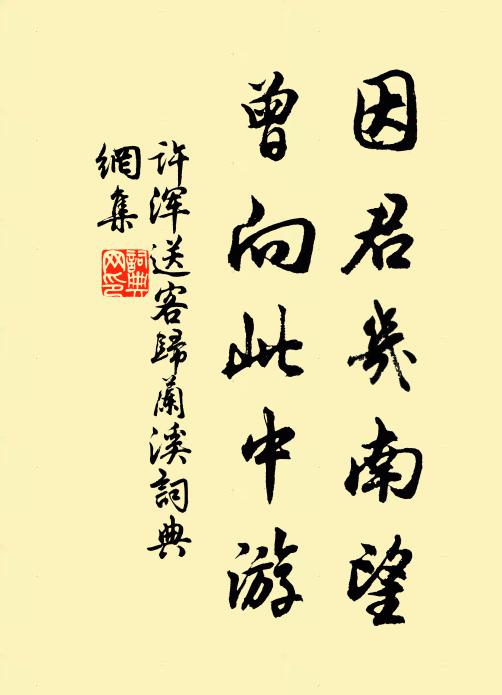 因君几南望
曾向此中游
许浑送客歸蘭溪詞典
網集
詞典
网印